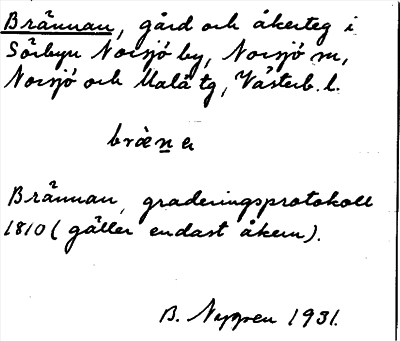 Brännan, gård och åkerteg i
Sörbyn Norsjö by, Norsjö sn,
Norsjö och Malå tg, Västerb. l.
bràn̲e
Brännan, graderingsprotokoll
1810 (gäller endast åkern).
B. Nygren 1931.